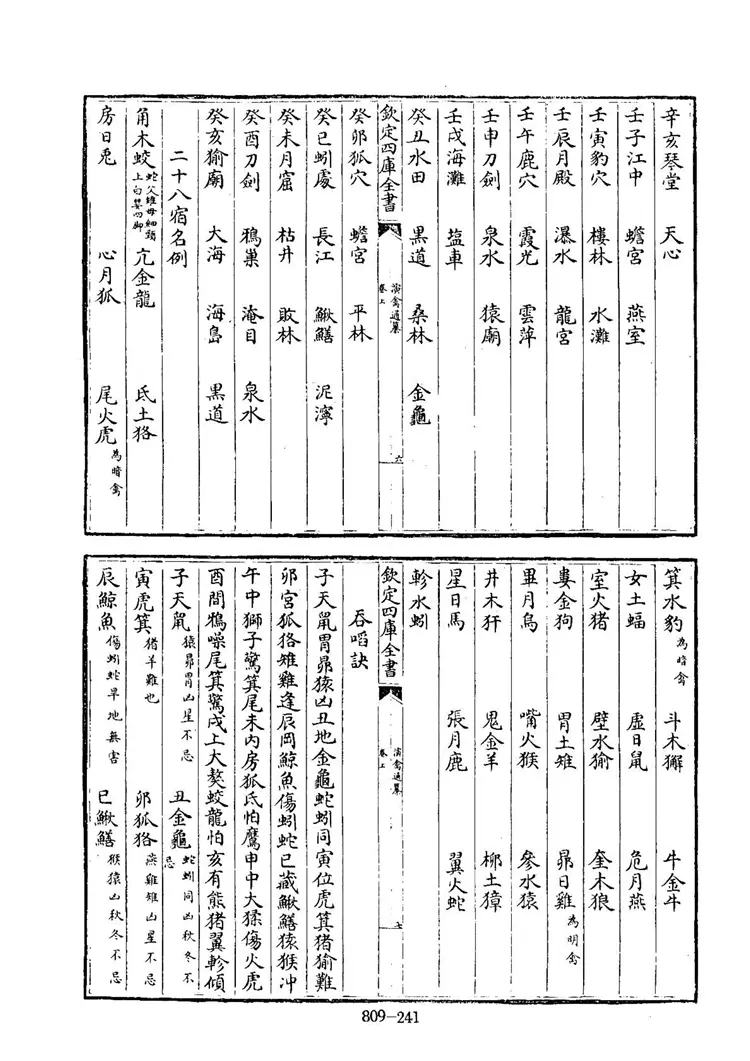 辛亥琴堂 天心
壬子江中 蟾宮 燕室
壬寅豹穴 樓林 水灘
壬辰月殿 瀑水 龍宮
壬午鹿穴 霞光 雲萍
壬申刀劍 泉水 猿廟
壬戌海灘 塩車
癸丑水田 黒道 桑林 金龜
欽定四庫全書 演禽通纂 卷上 六
癸卯狐穴 蟾宮 平林
癸巳蚓處 長江 鰍鱔 泥濘
癸未月窟 枯井 敗林
癸酉刀劍 鴉巢 淹目 泉水
癸亥㺄廟 大海 海島 黒道
二十八宿名例
角木蛟 蛇父雉母細頸上白嬰四脚 亢金龍 氐土狢
房日兎 心月狐 尾火虎 為暗禽
箕水豹 為暗禽 斗木獬 牛金牛
女土蝠 虛日鼠 危月燕
室火猪 壁水㺄 奎木狼
婁金狗 胃土雉 昴日雞 為明禽
畢月烏 嘴火猴 參水猿
井木犴 鬼金羊 柳土獐
星日馬 張月鹿 翼火蛇
軫水蚓
欽定四庫全書 演禽通纂 卷上 七
吞啗訣
子天鼠胃昴猿凶丑地金龜蛇蚓同寅位虎箕猪㺄難
卯宮狐狢雉雞逢辰岡鯨魚傷蚓蛇巳藏鰍鱔猿猴冲
午中獅子驚箕尾未內房狐氐怕鷹申中大猱傷火虎
酉間鴉噪尾箕驚戌上大獒蛟龍怕亥有熊猪翼軫傾
子天鼠 猿昴胃凶星不忌 丑金龜 蛇蚓同凶秋冬不忌
寅虎箕 猪羊難也 卯狐狢 燕雞雉凶星不忌
辰鯨魚 傷蚓蛇旱地無害 巳鰍鱔 猴猿凶秋冬不忌
809-241